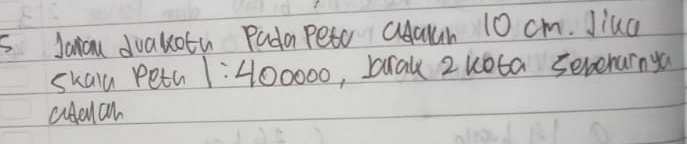 5 Jarak dua kota Pada Peta adalah 10 cm. Jika
Skala Peta 1:400000, Jarak 2 kota sebenarnya
adalah